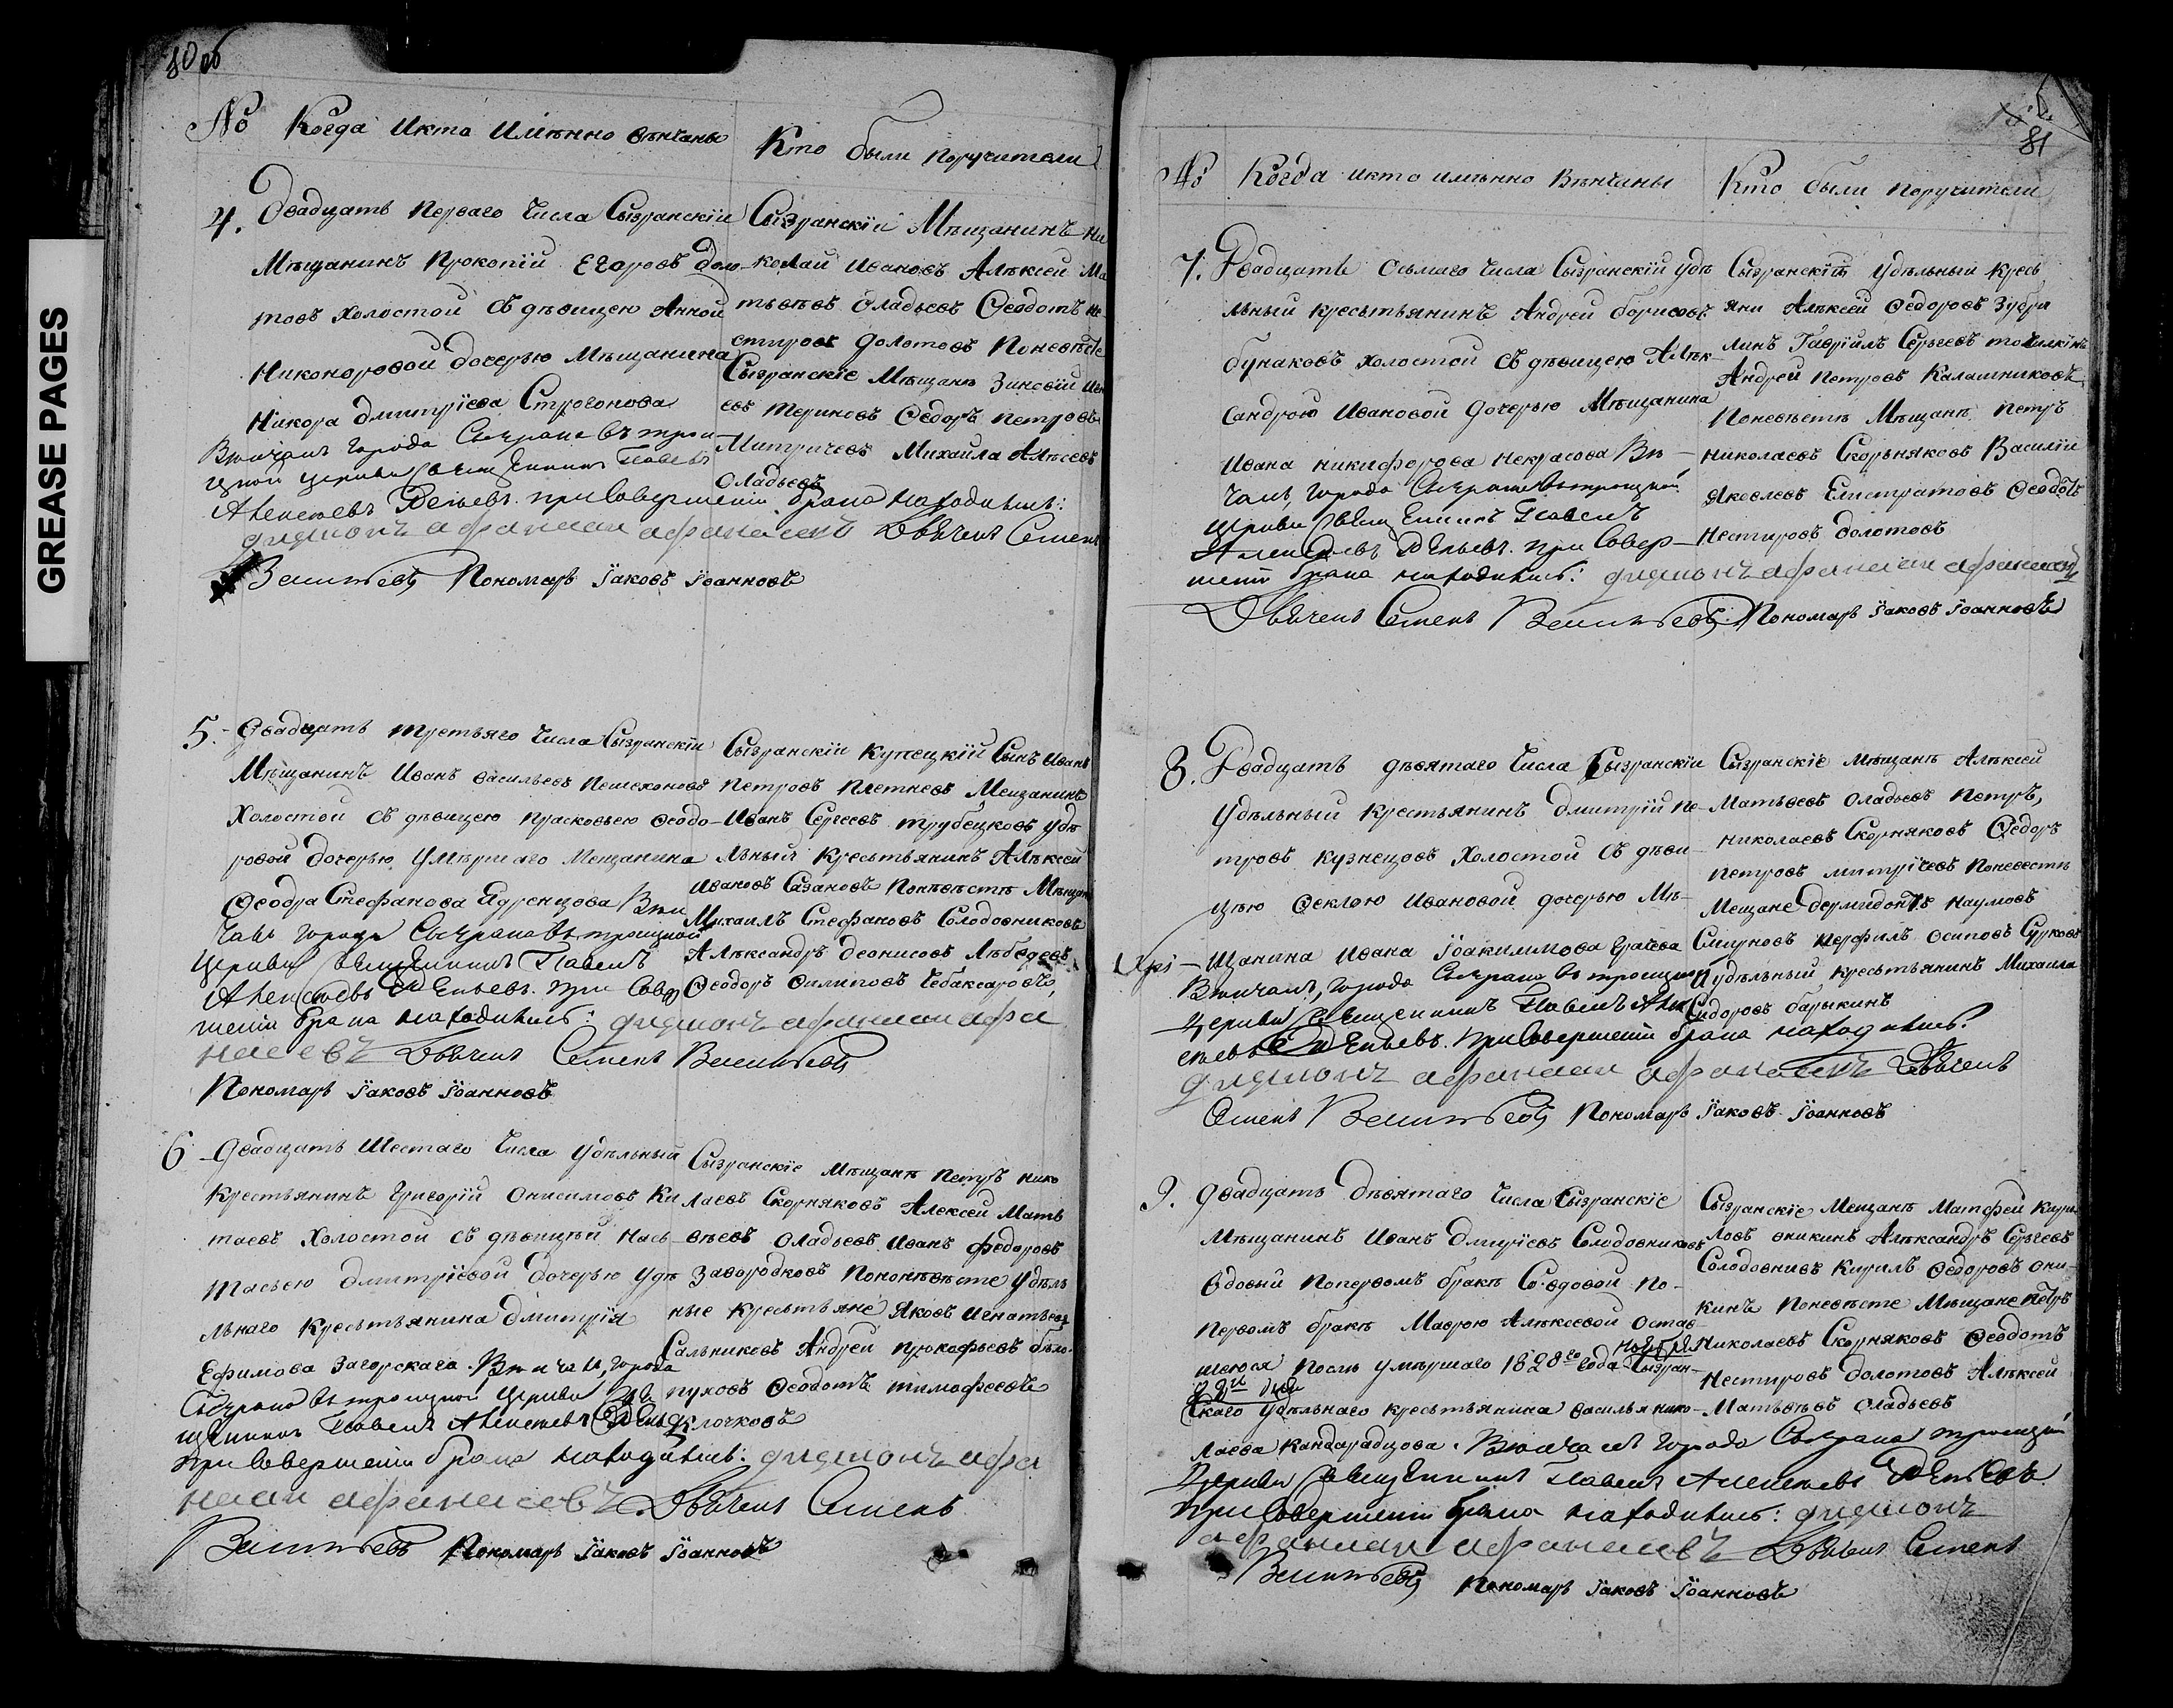 GREASE PAGES
80 об
№ Когда и кто имѣнно вѣнчаны
Кто были поручители
4. Двадцать перваго числа Сызранскіи
Мѣщанинъ Прокопій Егоровъ Доло-
товъ холостой съ дѣвицею Анной
Никоноровой дочерью мѣщанина
Никора Дмитрїева Строгонова
Вѣнчалъ города Сызрана въ трои
цкой церкви священникъ Павелъ
Алексѣевъ при совершеніи брака находились:
дияконъ афанасии афанасевъ Дьячекъ Семенъ
Васильевъ Пономарь Їаковъ Їоанновъ
Сызранскіи Мѣщанинъ Ни
колай Ивановъ Алѣксей Ма
твѣевъ Оладьевъ Ѳеодотъ Не
стировъ Долотовъ Поневѣсте
Сызранскіе мѣщанѣ Зиновій
евъ Териновъ Ѳедоръ Петровъ
Митричевъ Михайла Алѣсевъ
Оладьевъ
5. Двадцать третьяго числа Сызранскіи
Мѣщанинъ Иванъ Васильевъ Пешехоновъ
Холостой съ дѣвицею Прасковьею Ѳеодо-
ровой дочерью умѣршаго Мещанина
Ѳеодра Стефанова Ядренцова Вѣн
чалъ города Сызрана въ троицкой
Церкви священникъ Павелъ
Алексѣевъ при совер
шеніи брака находились: дияконъ афанасии афа
насевъ Дьячекъ Семенъ Васильевъ
Пономарь Їаковъ Їоанновъ
Сызранскіи Купецкій Сынъ Иванъ
Петровъ Плетневъ Мещанинъ
Иванъ Сергеевъ Трубецковъ Удѣ
льный Крестьянинъ Алѣксей
Ивановъ Сазановъ Поневѣстѣ Мѣщанѣ
Михаилъ Стефановъ Солодовниковъ
Алѣксандръ Деонисовъ Лѣбедевъ
Ѳеодоръ Филиповъ Чебаксаровъ
6 Двадцать шестаго числа Удѣльный
Крестьянинъ Григорій Онисимовъ Ки
таевъ Холостой съ дѣвицѣй Нась
тасьею Дмитрїевой дочерью удѣ
льнаго Крестьянина Дмитрїя
Ефимова Загорскаго. Вѣнчалъ, города
Сызрана въ троицкой Церкви свя
щенникъ Павелъ Алексѣевъ
при совершеніи брака находились: дияконъ афа
насии афанасевъ Дьячекъ Семенъ
Васильевъ Пономарь Їаковъ Їоанновъ
Сызранскіе Мѣщанѣ Петръ Нико
лаевъ Скорняковъ Алексей Мать
вѣевъ Оладьевъ Иванъ Федоровъ
Завородковъ Поневѣсте Удѣль
ные Крестьяне Яковъ Игнатьевъ
Сальниковъ Андрей Прокофьевъ Бѣло-
пуховъ Ѳеодотъ Тимофеевъ
Клочковъ
81
№ Когда и кто имѣнно вѣнчаны
Кто были поручители
7. Двадцать осьмаго числа Сызранскій Удѣ
льный Крестьянинъ Андрей Борисовъ
Бунаковъ холостой съ дѣвицею Алѣк-
сандрою Ивановой дочерью Мѣщанина
Ивана Никифорова Некрасова Вѣ-
чалъ, города Сызрана въ троицкой
церкви священникъ Павелъ
Алексѣевъ при совер-
шеніи брака находились: диякон афанасии афанасевъ
Дьячекъ Семенъ Васильевъ. Пономарь Їаковъ Їоанновъ
Сызранскій Удѣльный Кресь
яни Алѣксей Ѳедоровъ Зубри
линъ Гаврїилъ Сергеевъ
Андрей Петровъ Калашниковъ
Поневѣстѣ Мѣщанѣ Петръ
Николаевъ Скорьняковъ Василіи
Яковлевъ Елистратовъ Ѳеодотъ
Нестировъ Долотовъ
8. Двадцать дѣвятаго числа Сызранскіи
Удѣльный Крестьянинъ Дмитрїй Пе-
тровъ Кузнецовъ Холостой съ дѣви-
цѣю Ѳеклою Ивановой дочерью Мѣ-
щанина Ивана Їоакимова Грачева
Вѣнчалъ, города Сызрана въ троицкой
Церкви священникъ Павелъ Алек
сѣевъ при совершеніи брака находились:
диякон афанасии афанасевъ Дьячекъ
Семенъ Васильевъ Пономарь Їаковъ Їоанновъ
Сызранскіе Мѣщанѣ Алѣксей
Матьвеевъ Оладьевъ Петръ,
Николаевъ Скорняковъ Ѳедоръ
Петровъ Митрїчевъ Поневестѣ
Мещане Дермидонтъ Наумовъ
Смирновъ Перфилъ Осиповъ Сурковъ
Удѣльный Крестьянинъ Михаила
Сидоровъ Барыкинъ
9. Двадцать дѣвятаго числа Сызранскіе
Мѣщанинъ Иванъ Дмирїевъ Слодовниковъ
Вдовый Попервомъ бракѣ Со вдовой По-
первомъ бракѣ Маврою Алѣксевой остав-
шеюся послѣ умѣршаго 1828го года Ноября Сызран-
скаго Удѣльнаго крестьянина Василья Нико-
лаева Кандарадцова. Вѣнчалъ города Сызрана троицкой
Церкви священникъ Павелъ Алексѣевъ
при совершеніи брака находились: диякон
афанасии афанасевъ Дьячекъ Семенъ
Васильевъ Пономарь Їаковъ Їоанновъ
Сызранскіе Мещанѣ Матфей Кири
ловъ Аникинъ Алѣксандръ Сергеевъ
Солодовнивъ Кирилъ Ѳедоровъ Они-
кинъ Поневѣсте Мѣщане Петръ
Николаевъ Скорняковъ Ѳеодотъ
Нестировъ Долотовъ Алѣксей
Матьвѣевъ Оладьевъ